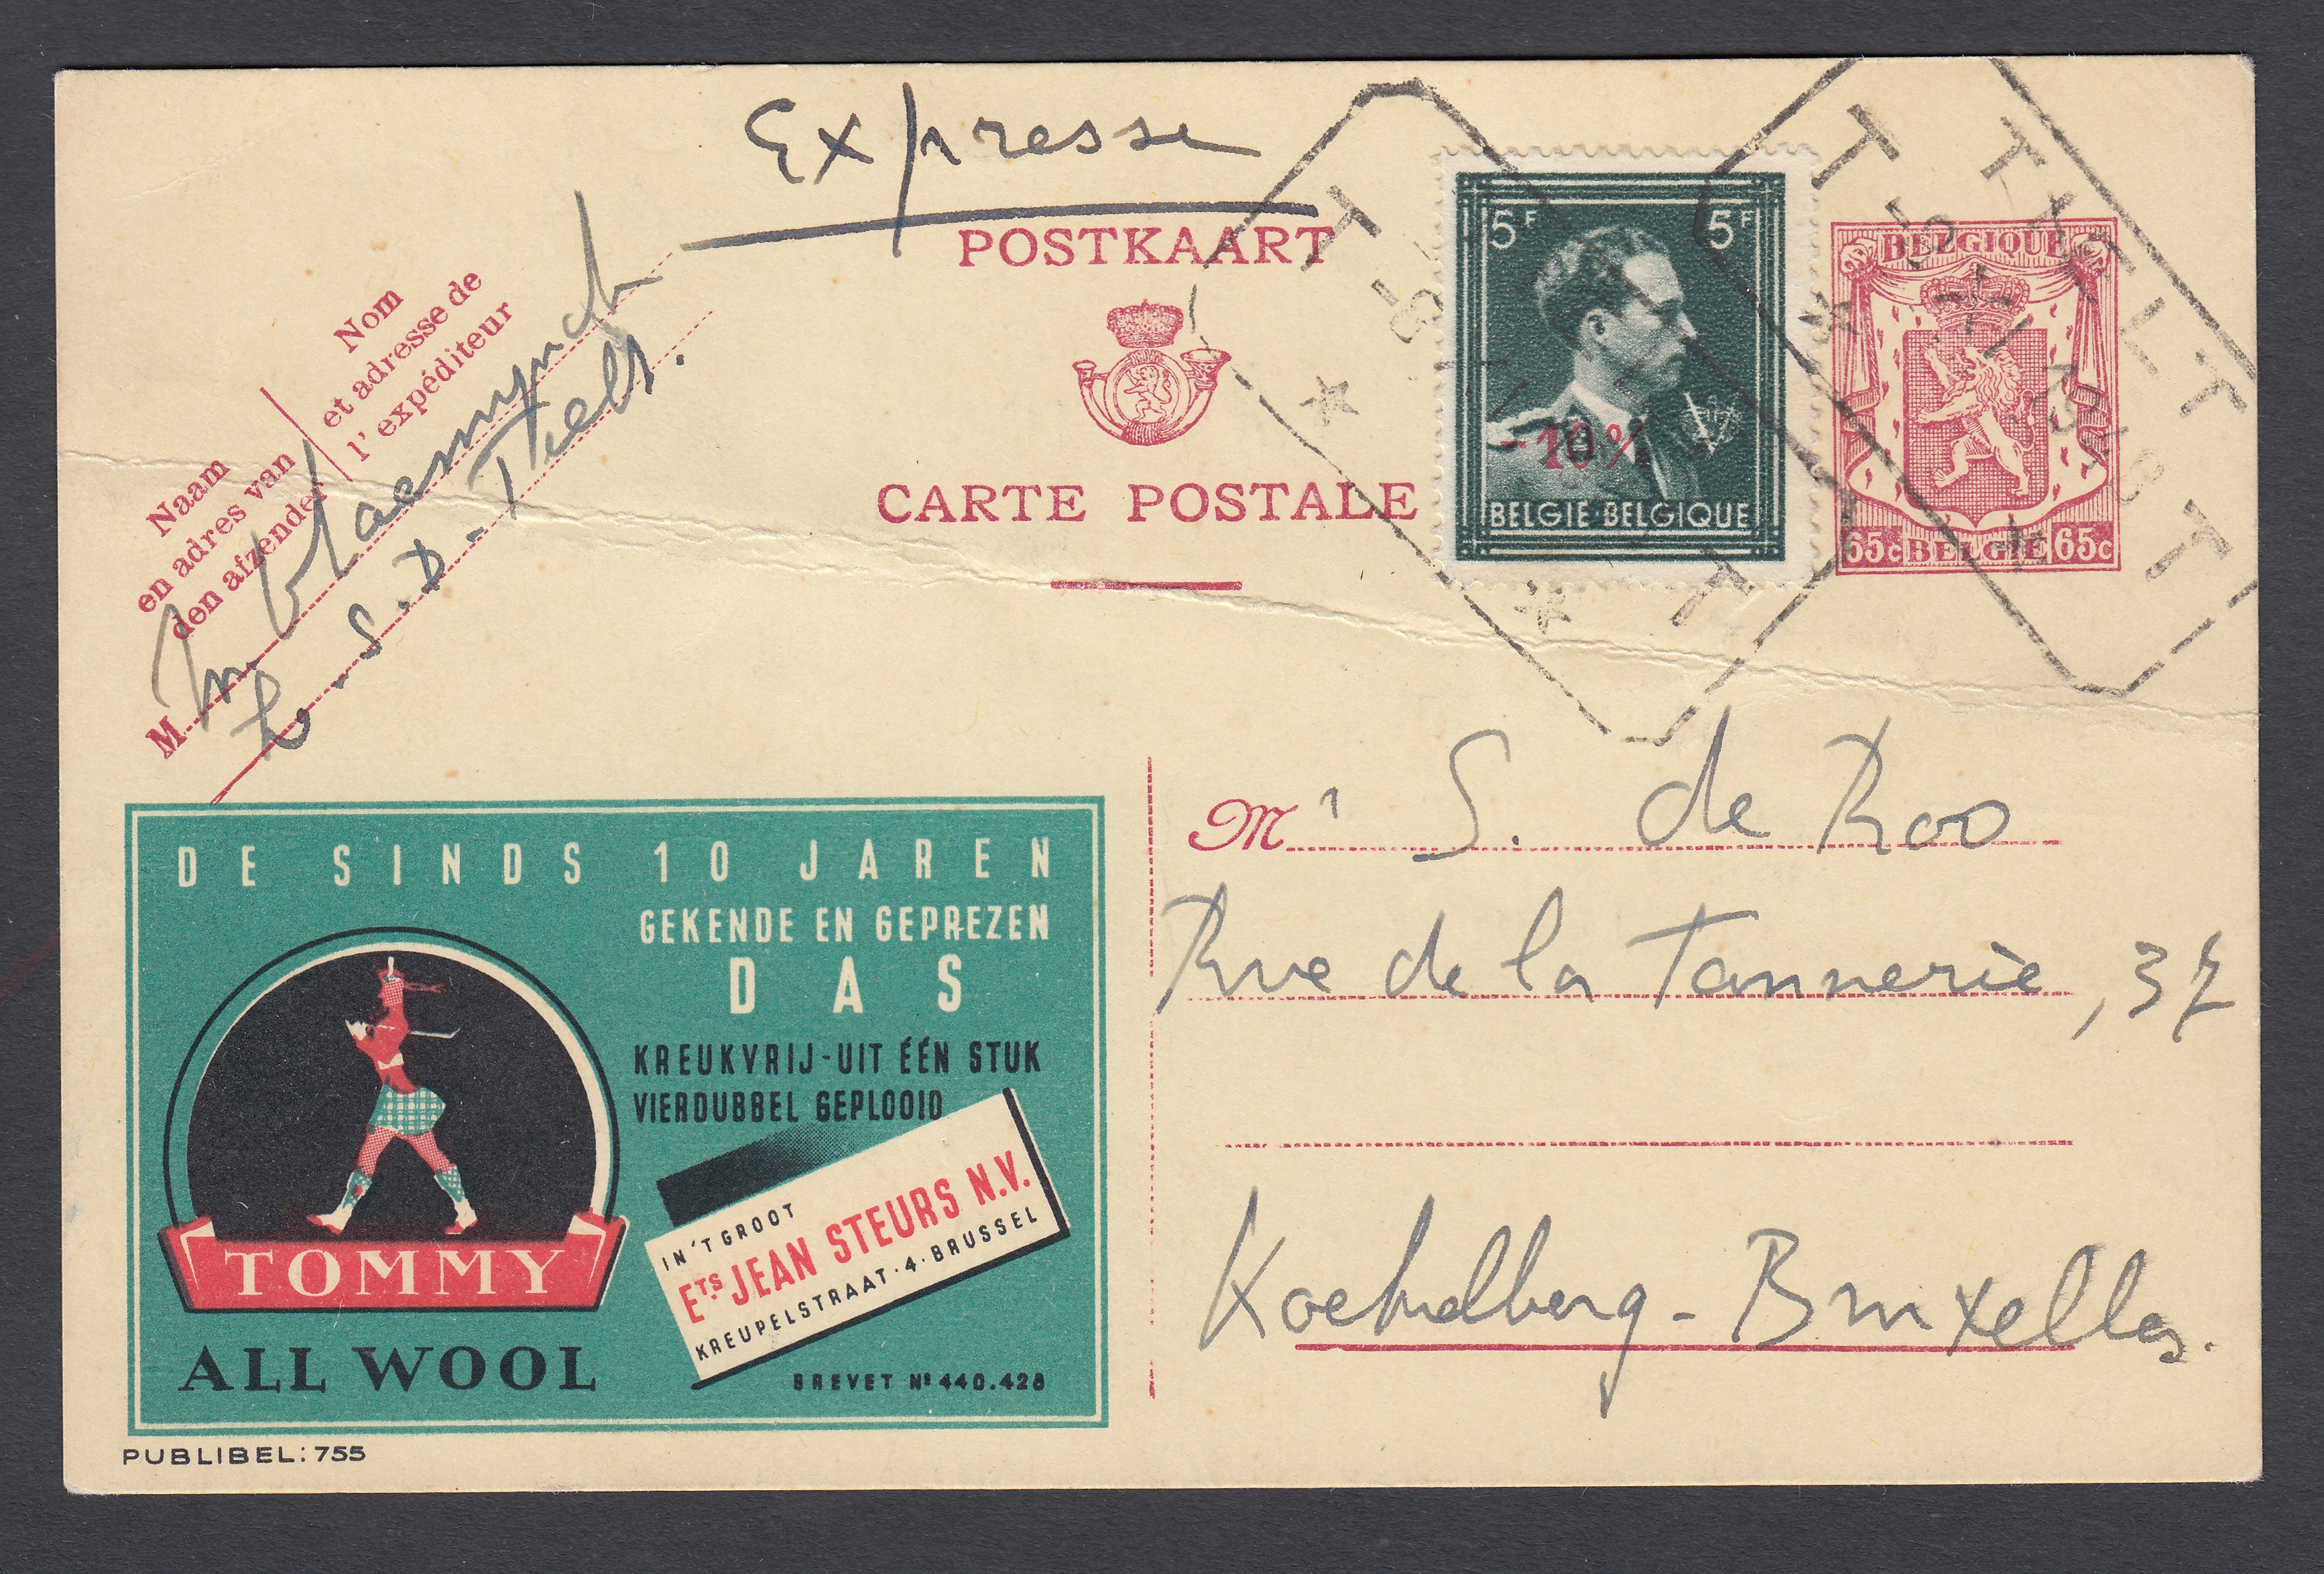 Expresse
POSTKAART
CARTE POSTALE
Nom
et adresse de
l'expéditeur
Naam
en adres van
den afzender
M
L. S. D. Tielt.
5F 5F
-10%
BELGIE BELGIQUE
BELGIQUE
65c BELGIE 65c
T TIELT T
1948
T T
DE SINDS 10 JAREN
GEKENDE EN GEPREZEN
DAS
KREUKVRIJ-UIT ÉÉN STUK
VIERDUBBEL GEPLOOID
IN 'T GROOT
ETS JEAN STEURS N.V.
KREUPELSTRAAT·4·BRUSSEL
TOMMY
ALL WOOL
BREVET No 440.428
PUBLIBEL: 755
Mr S. de Roo
Rue de la Tannerie, 37
Koekelberg - Bruxelles.